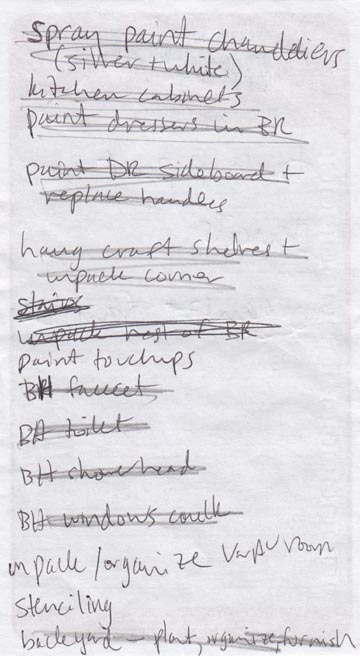 spray paint chandeliers
(silver + white)
kitchen cabinets
paint dressers in BR
paint DR sideboard +
replace handles
hang craft shelves +
unpack corner
stairs
unpack rest of BR
paint touchups
BH faucet
BH toilet
BH showerhead
BH windows caulk
unpack / organize room
stenciling
backyard - plant, organize, furnish